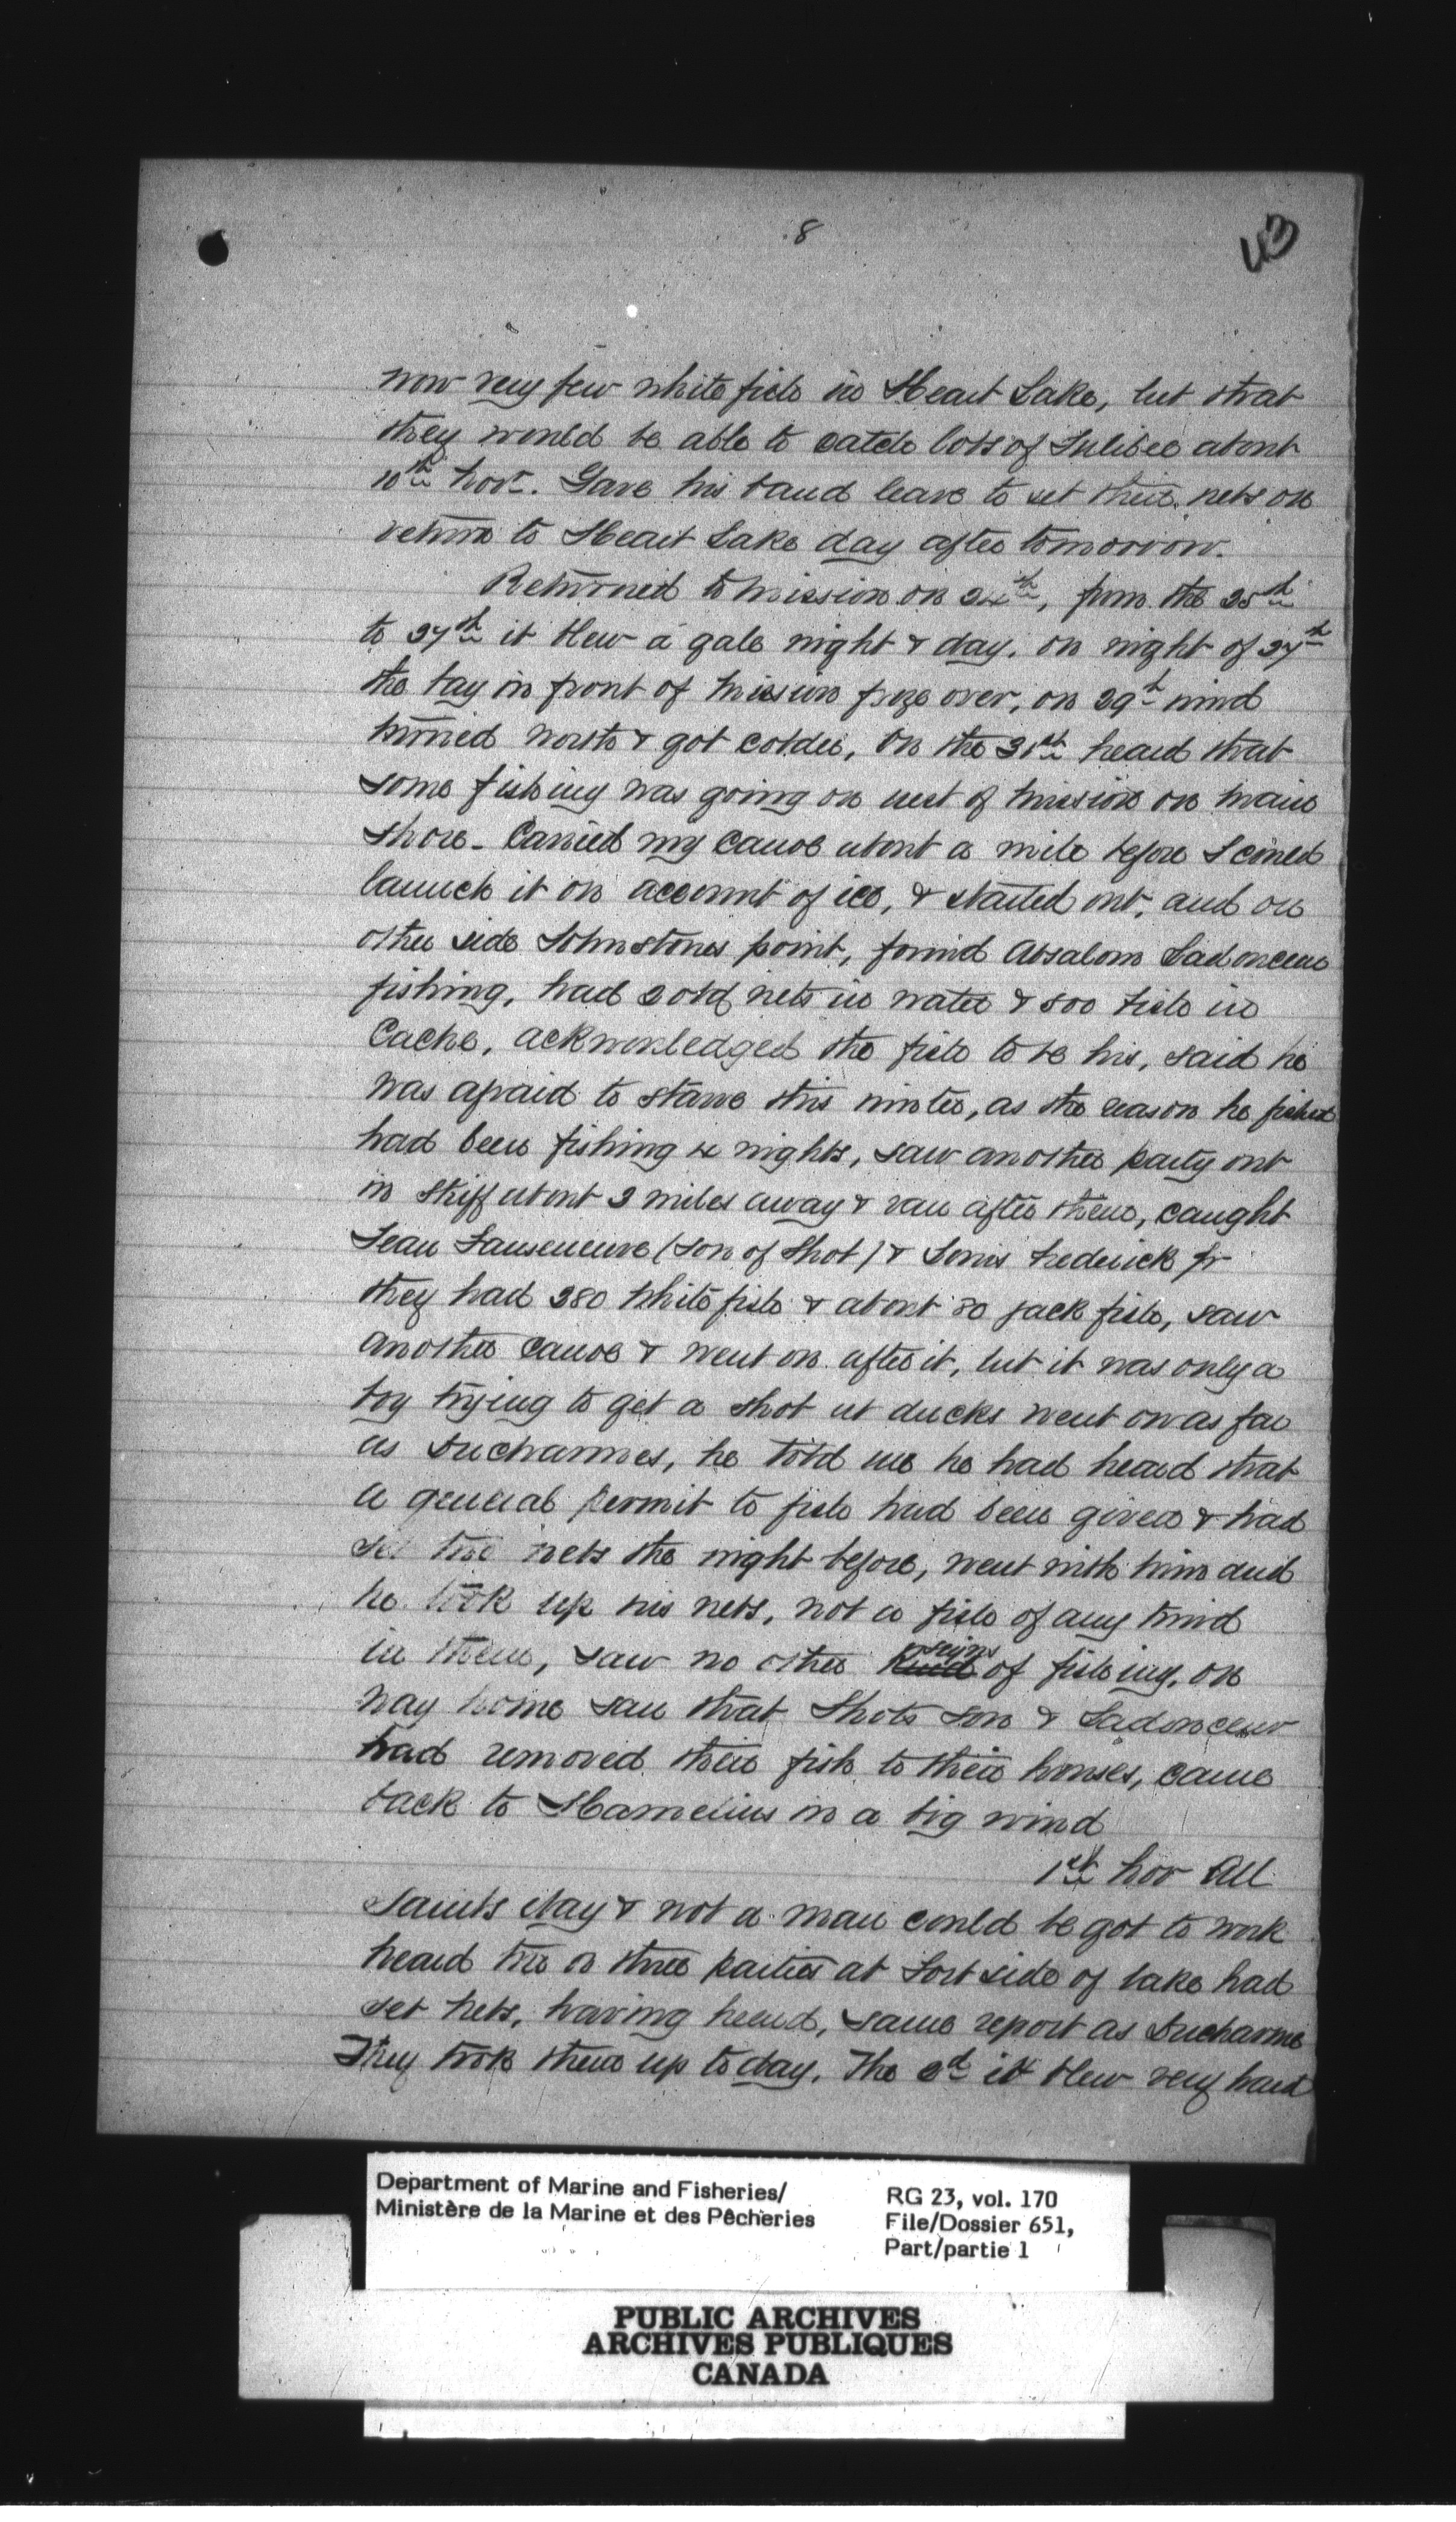 8
43
now very few white fish in Heart Lake, but that
they would be able to catch lots of Tulibee about
10th Novr. Gave his band leave to set their nets on
return to Heart Lake day after tomorrow.
Returned to Mission on 24th, from the 25th
to 27th it blew a gale night & day. on night of 27th
the bay in front of Mission froze over, on 29th wind
turned north & got colder, On the 31st heard that
some fishing was going on west of Mission on main
shore. Carried my Canoe about a mile before I could
launch it on account of ice, & started out, and on
other side Johnstones point, found Absalom Ladouceur
fishing, had 2 old nets in water & 500 fish in
Cache, acknowledged the fish to be his, said he
was afraid to starve this winter, as the reason he fished
had been fishing 4 nights, saw another party out
in skiff about 2 miles away & ran after them, caught
Jean Fauseneuve (son of Shot) & Louis Frederick jr
they had 280 White fish & about 80 jack fish, saw
another Canoe & went on after it, but it was only a
boy trying to get a shot at ducks went on as far
as Ducharmes, he told me he had heard that
a general permit to fish had been given & had
set two nets the night before, went with him and
he took up his nets, not a fish of any kind
in them, saw no other kind signs of fishing, on
way home saw that Shots son & Ladouceur
had removed their fish to their houses, came
back to Hamelins in a big wind
1st Nov All
Saints day & not a man could be got to work
heard two or three parties at Fort side of lake had
set nets, having heard, same report as Ducharme
They took them up to day. The 2d it blew very hard
Department of Marine and Fisheries/
Ministère de la Marine et des Pêcheries
RG 23, vol. 170
File/Dossier 651,
Part/partie 1
PUBLIC ARCHIVES
ARCHIVES PUBLIQUES
CANADA